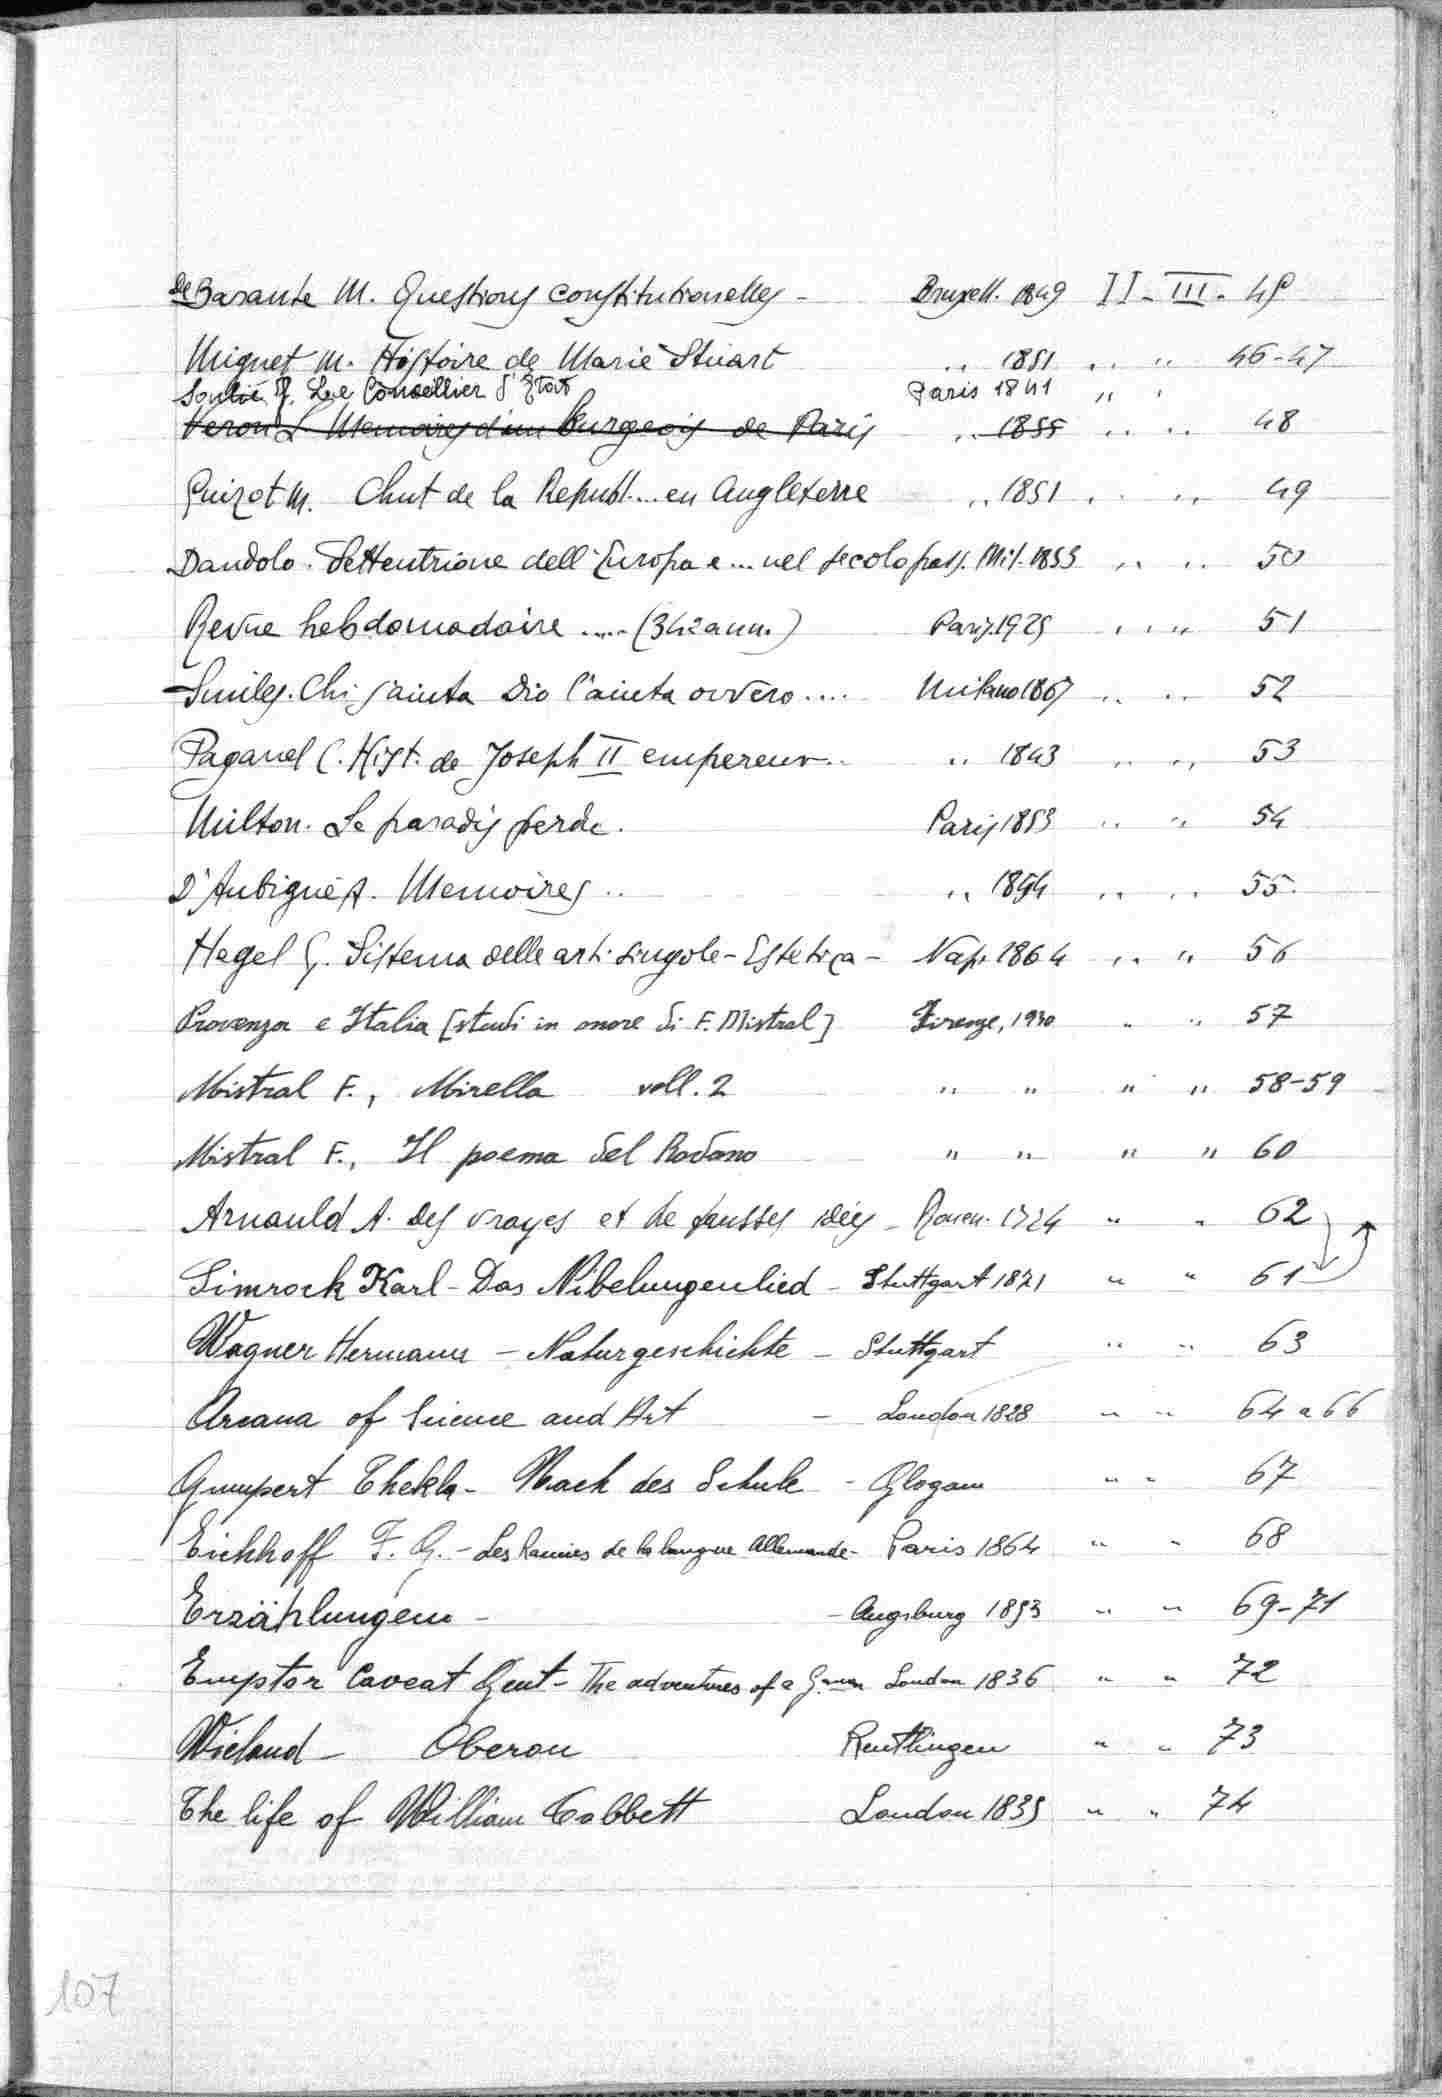 De Barante M. Questions constitutionelles - Bruxell. 1849 II - III. 45
Mignet M. Histoire de Marie Stuart ,, 1851 ,, ,, 46-47
Soulié F. Le Conseillier d'Etat Paris 1841 ,, ,
Veron L Memoires d'un burgeois de Paris ,, 1855 ,, ,, 48
Guizot M. Chut de la Republ... en Angleterre ,, 1851 ,, ,, 49
Dandolo. Settentrione dell'Europa e ... nel secolo pass. Mil. 1853 ,, ,, 50
Revue hebdomadaire ..... (342 ann.) Paris. 1925 ,, ,, 51
Smiles. Chi s'aiuta Dio l'aiuta ovvero .... Milano 1867 ,, ,, 52
Paganel C. Hist. de Joseph II empereur .. ,, 1843 ,, ,, 53
Milton. Le paradis perdu. Paris 1853 ,, ,, 54
D'Aubigné A. Memoires .. ,, 1854 ,, ,, 55.
Hegel G. Sistema delle arti singole - Estetica - Nap. 1864 ,, ,, 56
Provenza e Italia [studi in onore di F. Mistral] Firenze, 1930 ,, ,, 57
Mistral F., Mirella voll. 2 ,, ,, ,, ,, 58-59
Mistral F., Il poema del Rodano ,, ,, ,, ,, 60
Arnauld A. Des vrayes et de fausses idées - Rouen. 1724 ,, ,, 62
Simrock Karl - Das Nibelungenlied - Stuttgart 1871 ,, ,, 61
Wagner Hermann - Naturgeschichte - Stuttgart ,, ,, 63
Arcana of Science and Art - London 1828 ,, ,, 64 a 66
Gumpert Thekla - Nach des Schule - Glogau ,, ,, 67
Eichhoff F. G. - Les Racines de la langue Allemande - Paris 1864 ,, ,, 68
Erzählungen - - Augsburg 1853 ,, ,, 69-71
Emptor Caveat Gent - The adventures of a London 1836 ,, ,, 72
Wieland - Oberon Reutlingen ,, ,, 73
The life of William Cobbett London 1835 ,, ,, 74
107